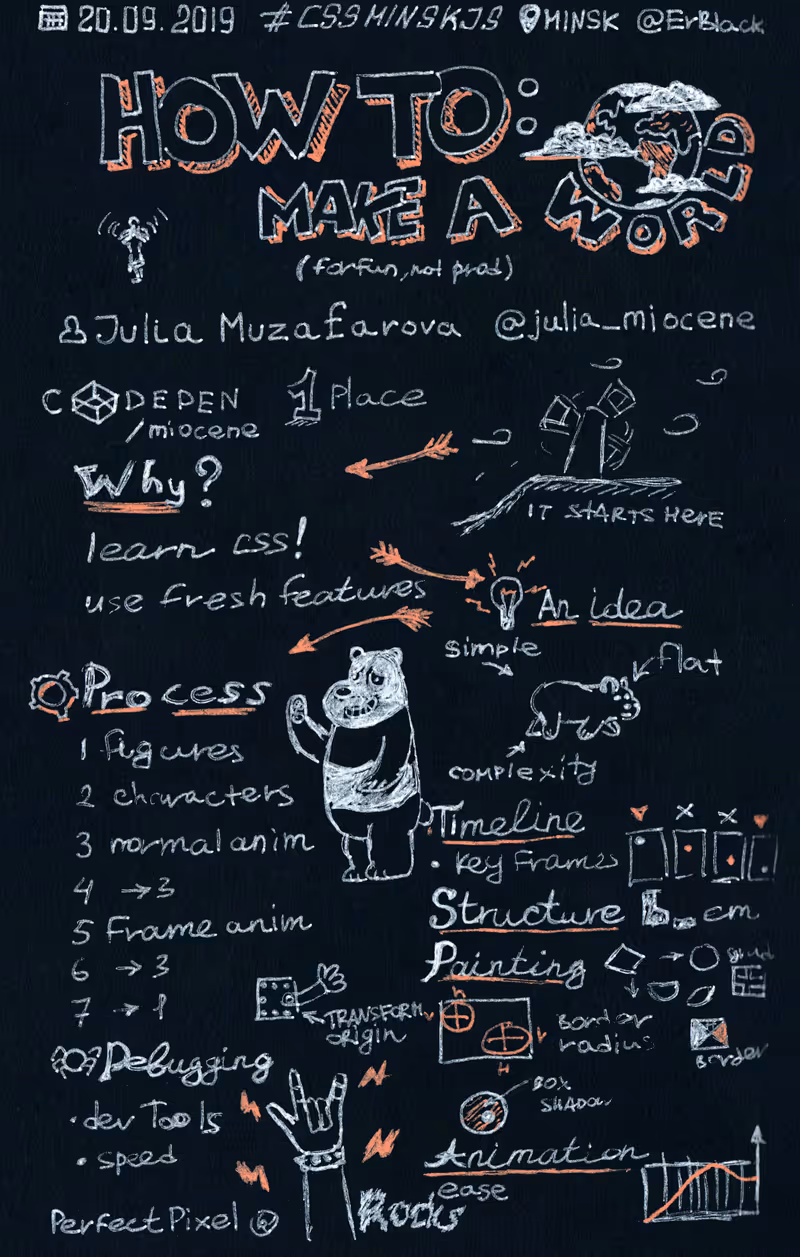 20.09.2019 #CSSMINSKJS MINSK @ErBlack
HOW TO:
MAKE A WORLD
(for fun, not prod)
Julia Muzafarova @julia_miocene
CODEPEN
/miocene
1 Place
IT STARTS HERE
Why?
learn css!
use fresh features
An idea
simple
flat
complexity
Process
1 figures
2 characters
3 normal anim
4 → 3
5 Frame anim
6 → 3
7 → 1
TRANSFORM
origin
Timeline
• Key Frames
Structure
em
Painting
h
v
v
H
Border
radius
Border
BOX
SHADOW
Animation
ease
Debugging
• dev Tools
• speed
PerfectPixel
Rocks